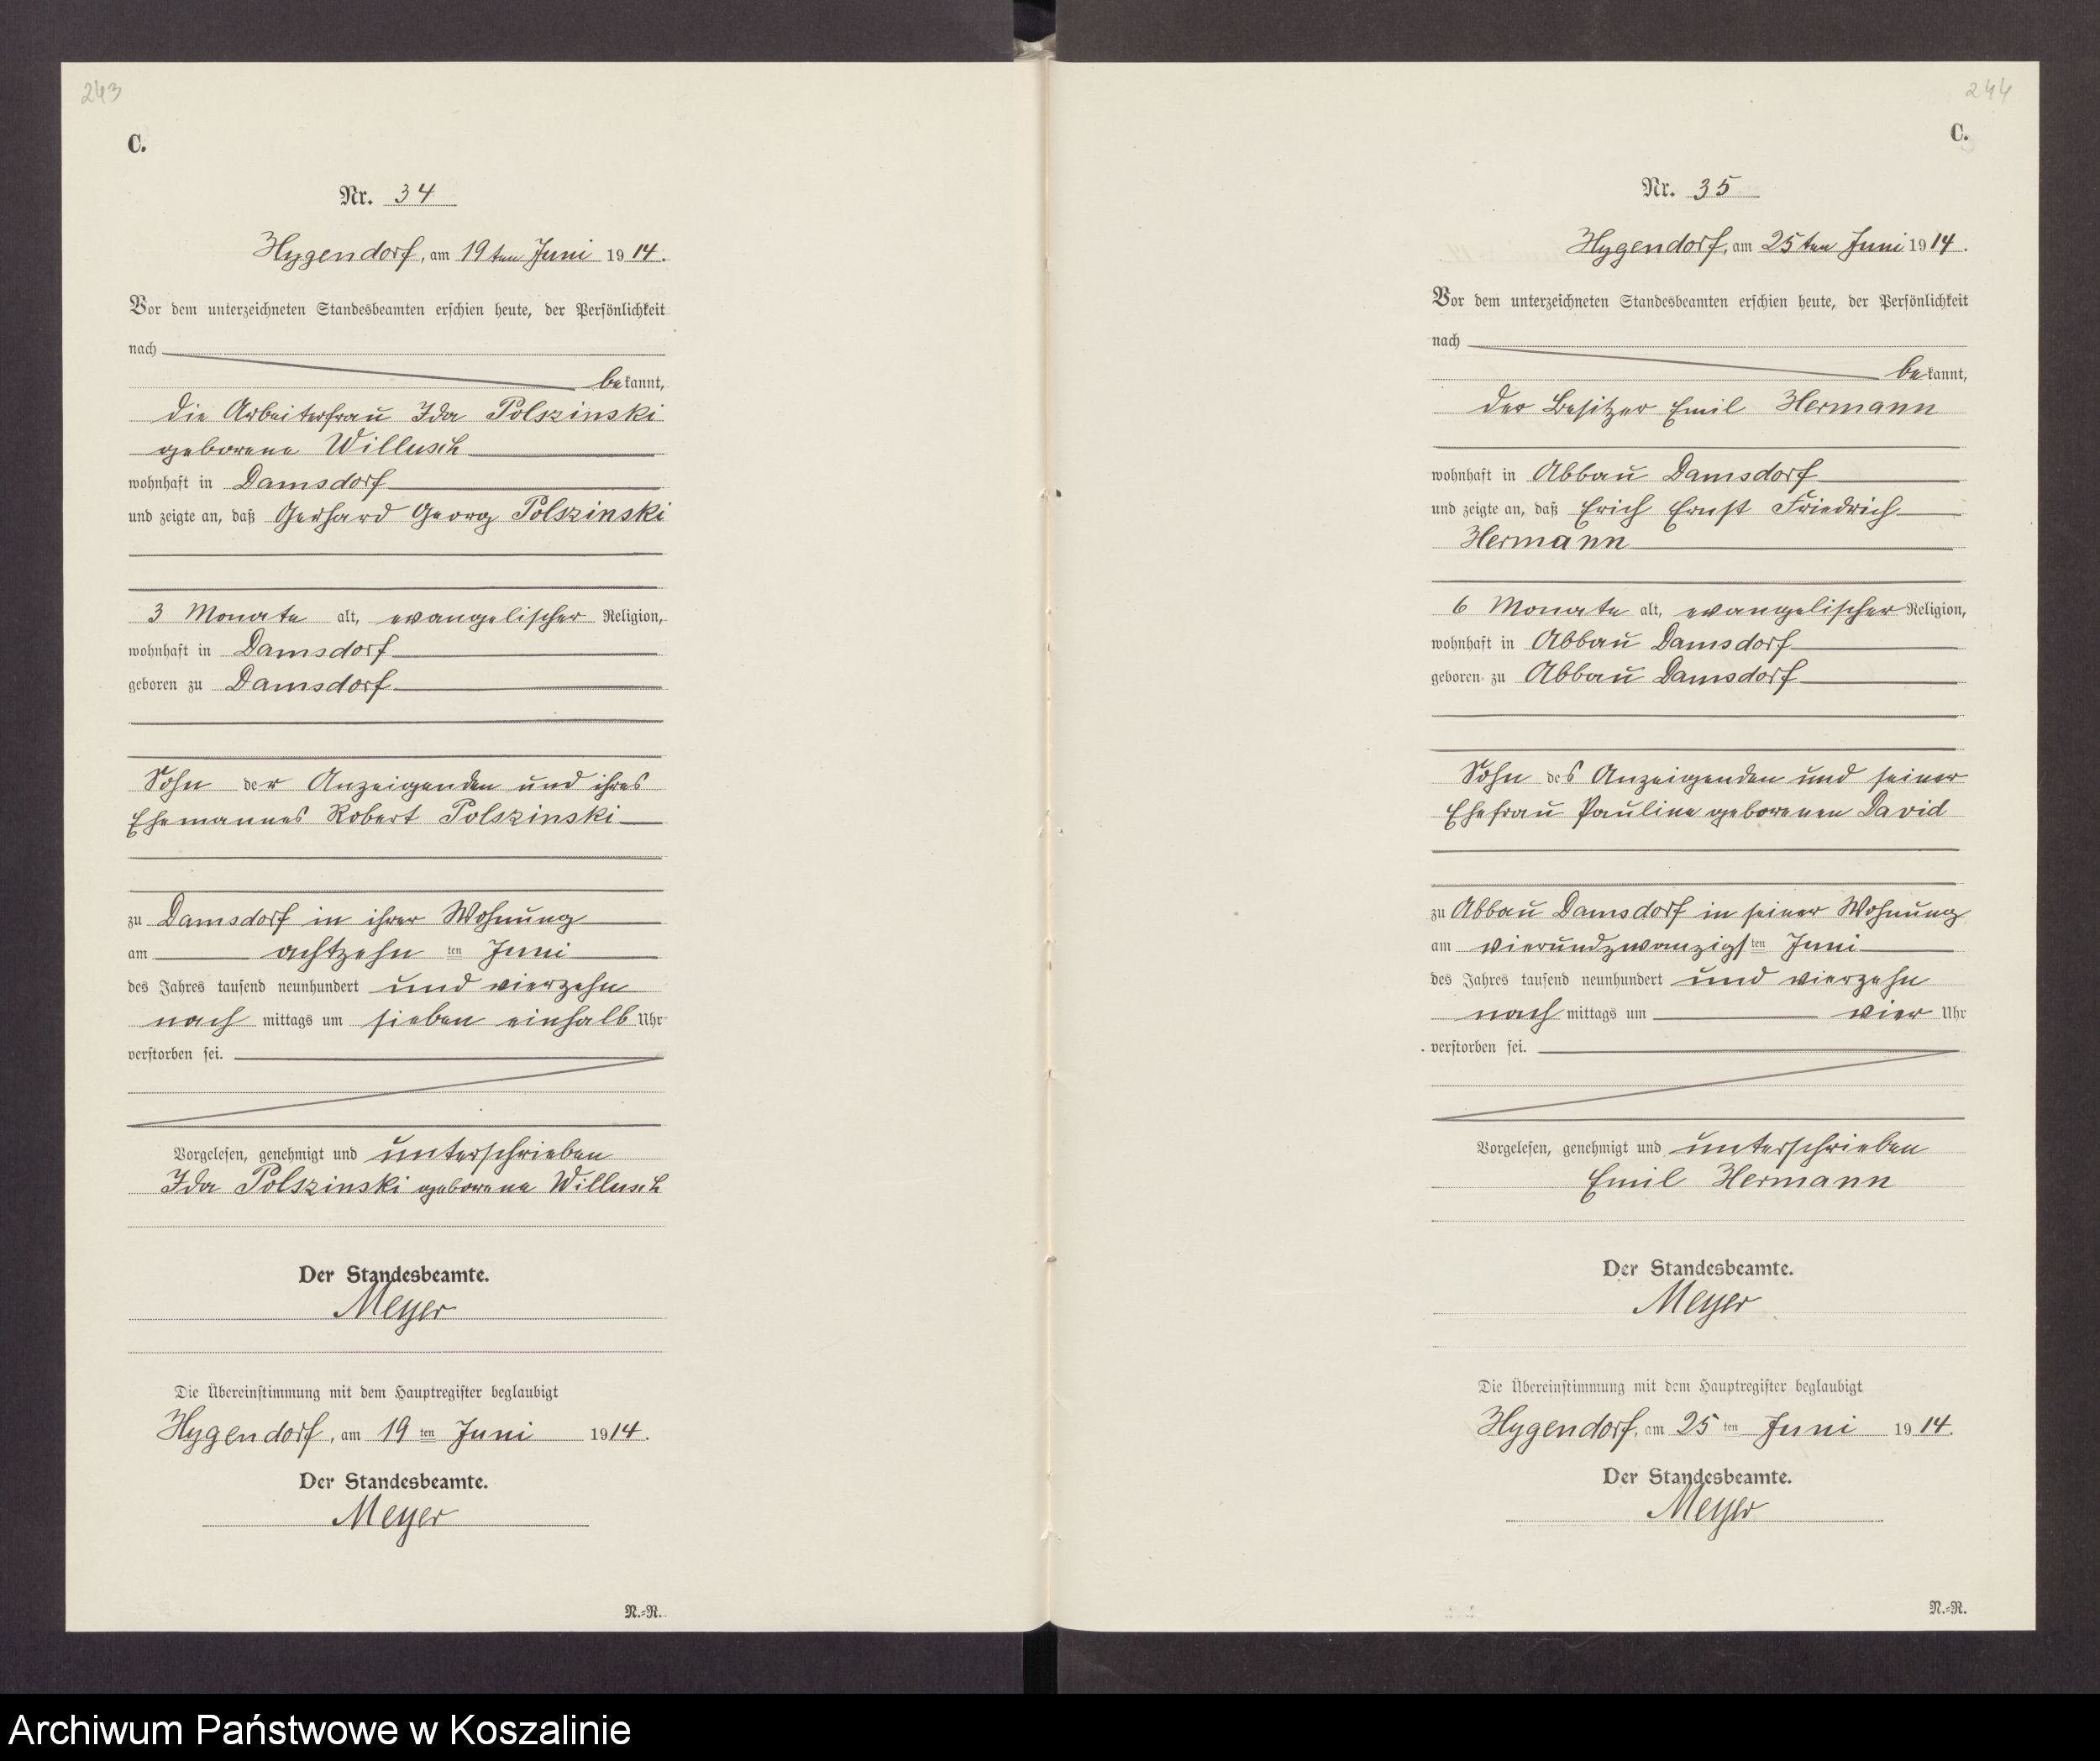 243
C.
Nr. 34
Hygendorf, am 19ten Juni 1914.
Vor dem unterzeichneten Standesbeamten erschien heute, der Persönlichkeit
nach
bekannt,
die Arbeiterfrau Ida Polszinski
geborene Willusch
wohnhaft in Damsdorf
und zeigte an, daß Gerhard Georg Polszinski
3 Monate alt, evangelischer Religion,
wohnhaft in Damsdorf
geboren zu Damsdorf
Sohn der Anzeigenden und ihres
Ehemannes Robert Polszinski
zu Damsdorf in ihrer Wohnung
am achtzehnten Juni
des Jahres tausend neunhundert und vierzehn
nachmittags um sieben einhalb Uhr
verstorben sei.
Vorgelesen, genehmigt und unterschrieben
Ida Polszinski geborene Willusch
Der Standesbeamte.
Meyer
Die Übereinstimmung mit dem Hauptregister beglaubigt
Hygendorf, am 19ten Juni 1914.
Der Standesbeamte.
Meyer
N.=R.
244
C.
Nr. 35
Hygendorf, am 25ten Juni 1914.
Vor dem unterzeichneten Standesbeamten erschien heute, der Persönlichkeit
nach
bekannt,
der Besitzer Emil Hermann
wohnhaft in Abbau Damsdorf
und zeigte an, daß Erich Ernst Friedrich
Hermann
6 Monate alt, evangelischer Religion,
wohnhaft in Abbau Damsdorf
geboren zu Abbau Damsdorf
Sohn des Anzeigenden und seiner
Ehefrau Pauline geborenen David
zu Abbau Damsdorf in seiner Wohnung
am vierundzwanzigsten Juni
des Jahres tausend neunhundert und vierzehn
nachmittags um vier Uhr
verstorben sei.
Vorgelesen, genehmigt und unterschrieben
Emil Hermann
Der Standesbeamte.
Meyer
Die Übereinstimmung mit dem Hauptregister beglaubigt
Hygendorf, am 25ten Juni 1914.
Der Standesbeamte.
Meyer
N.=R.
Archiwum Państwowe w Koszalinie